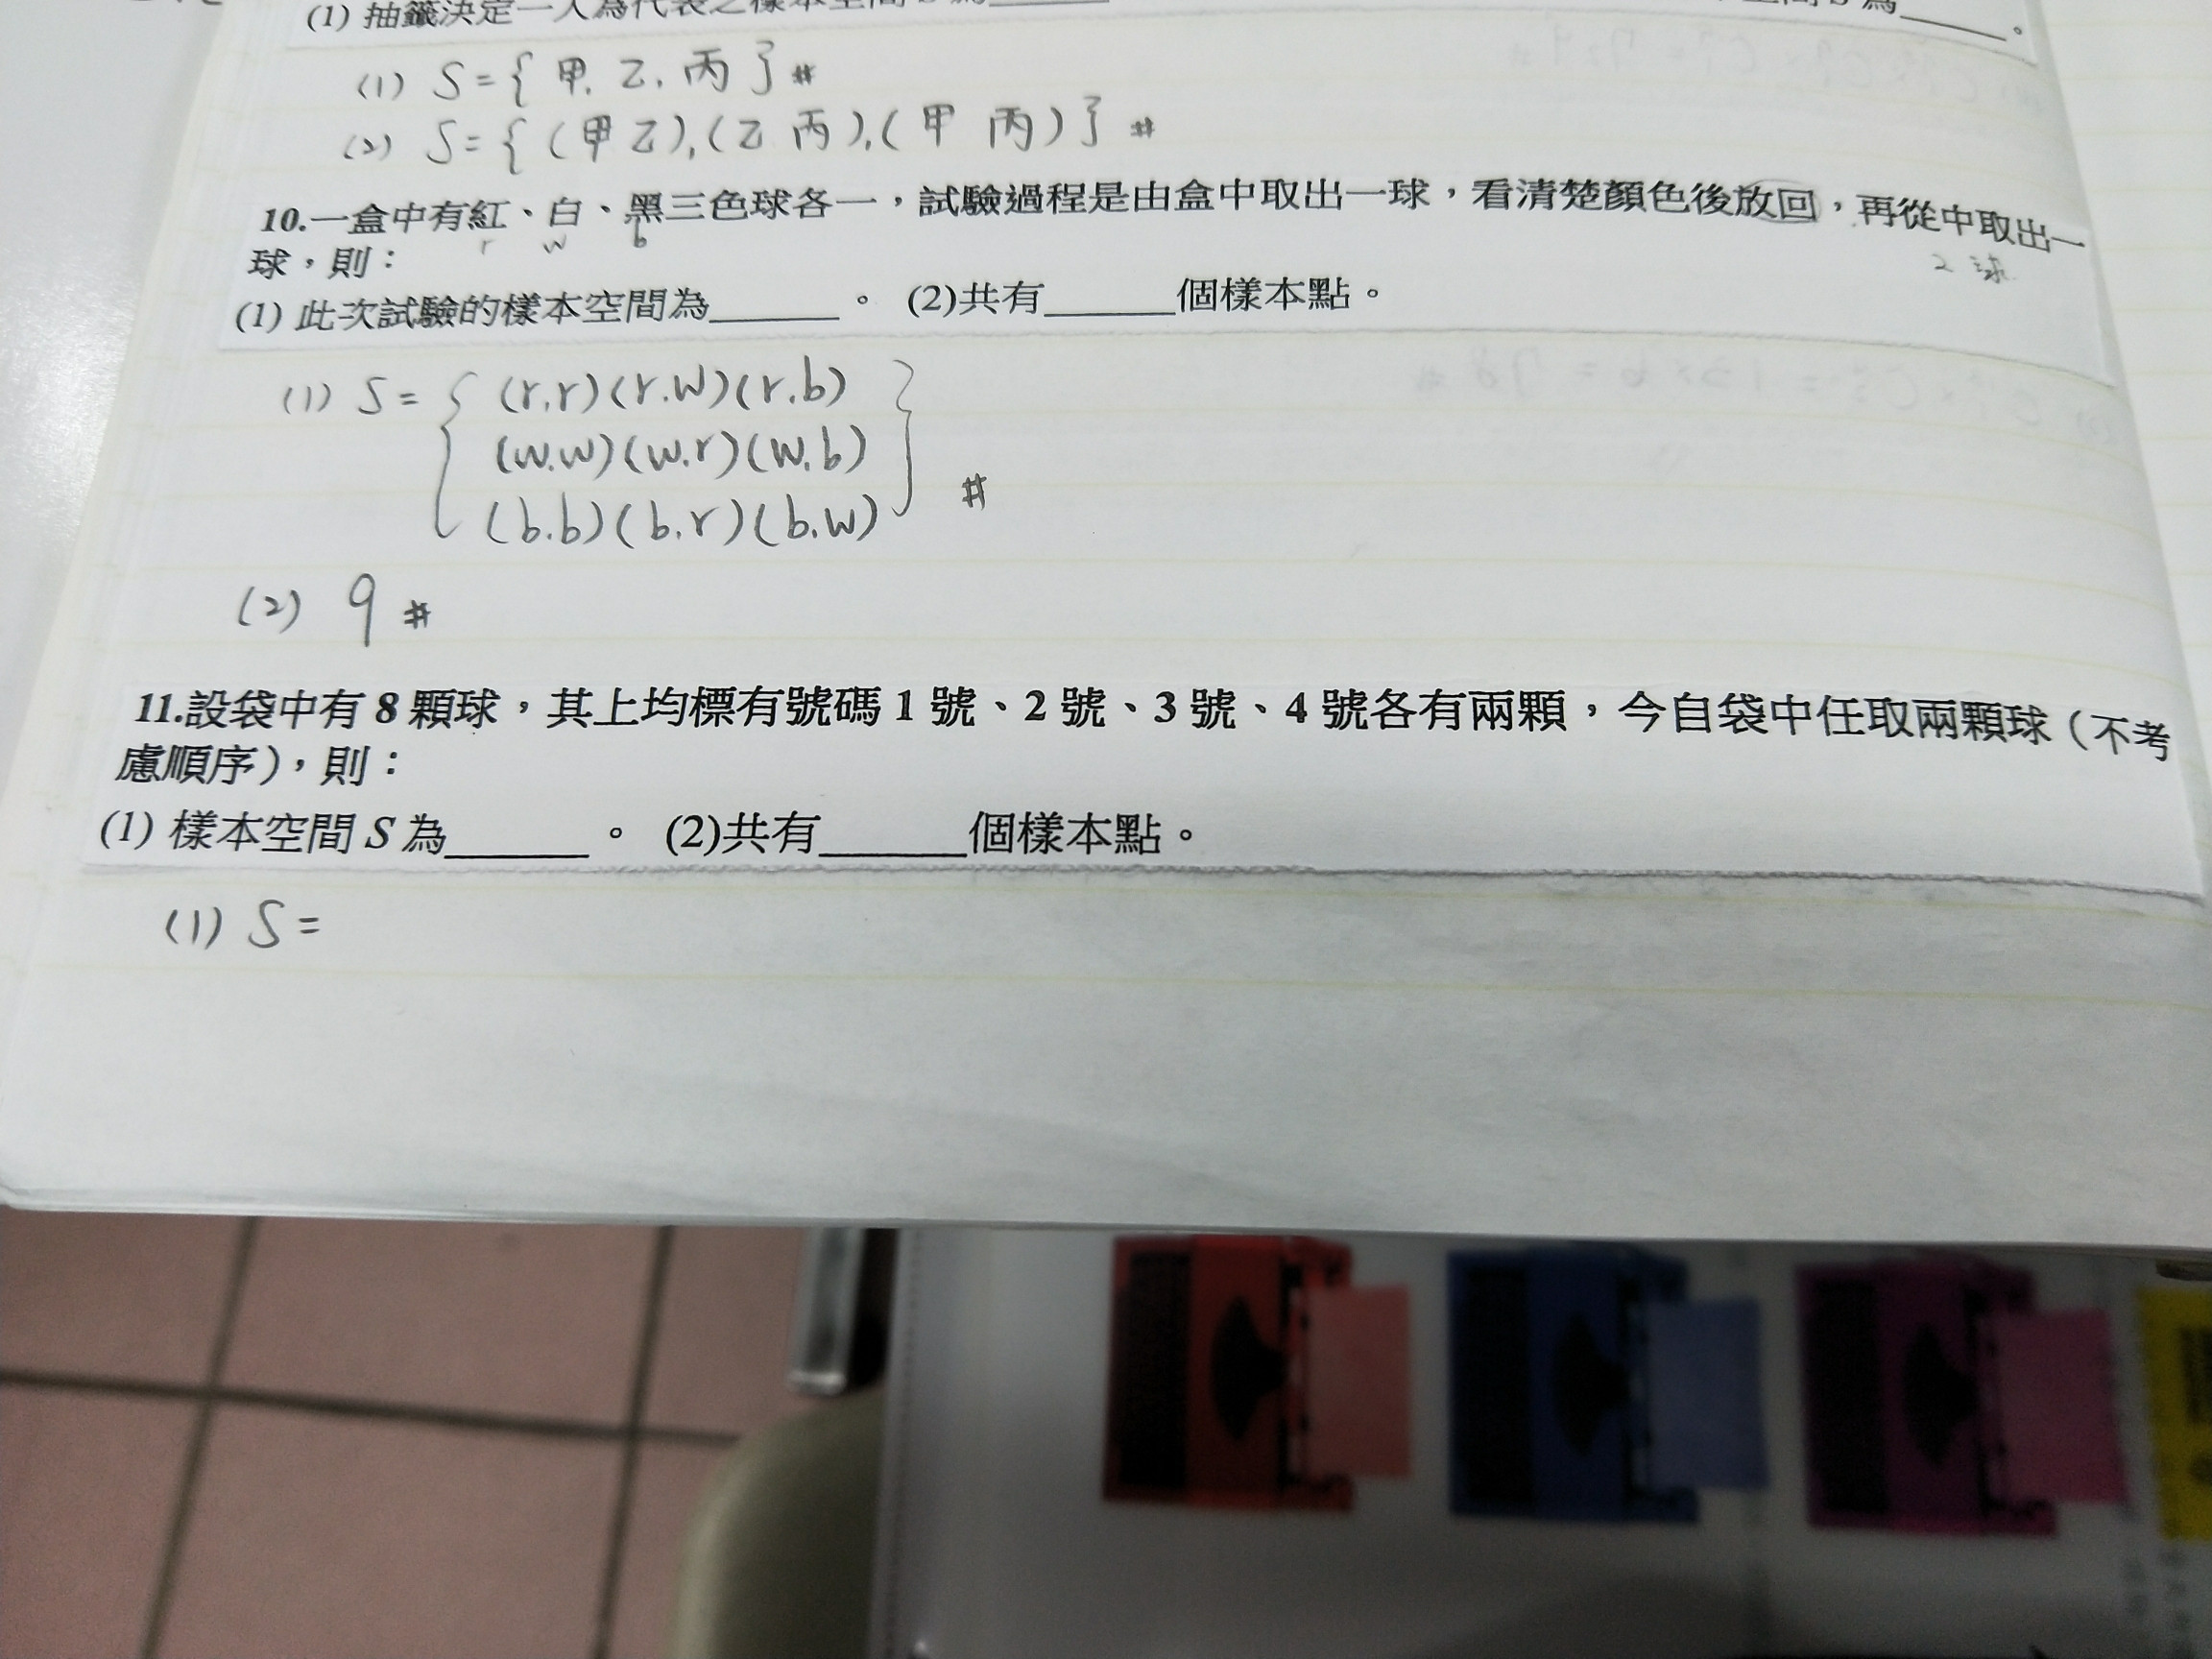 (1) 抽籤決定一人為代表之樣本空間 S 為______
空間 S 為______。
(1) S={甲.乙.丙}#
(2) S={(甲乙),(乙丙),(甲丙)}#
10.一盒中有紅、白、黑三色球各一，試驗過程是由盒中取出一球，看清楚顏色後放回，再從中取出一
r w b
2球
球，則：
(1) 此次試驗的樣本空間為______。 (2)共有______個樣本點。
(1) S={ (r,r)(r.w)(r.b)
(w.w)(w.r)(w.b)
(b.b)(b.r)(b.w) } #
(2) 9 #
11.設袋中有 8 顆球，其上均標有號碼 1 號、2 號、3 號、4 號各有兩顆，今自袋中任取兩顆球（不考
慮順序），則：
(1) 樣本空間 S 為______。 (2)共有______個樣本點。
(1) S=